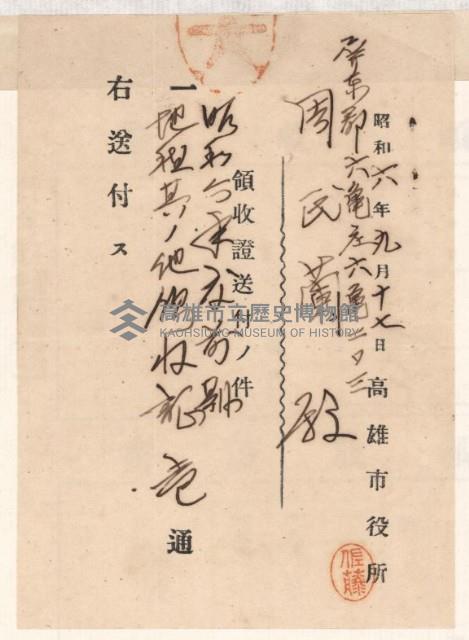 昭和六年九月十七日
高雄市役所
屏東郡六龜庄六龜二〇三
周民蘭殿
領收證送付ノ件
昭和六年度前期
一地租其ノ他領收證壱通
右送付ス
佐藤
高雄市立歷史博物館
KAOHSIUNG MUSEUM OF HISTORY